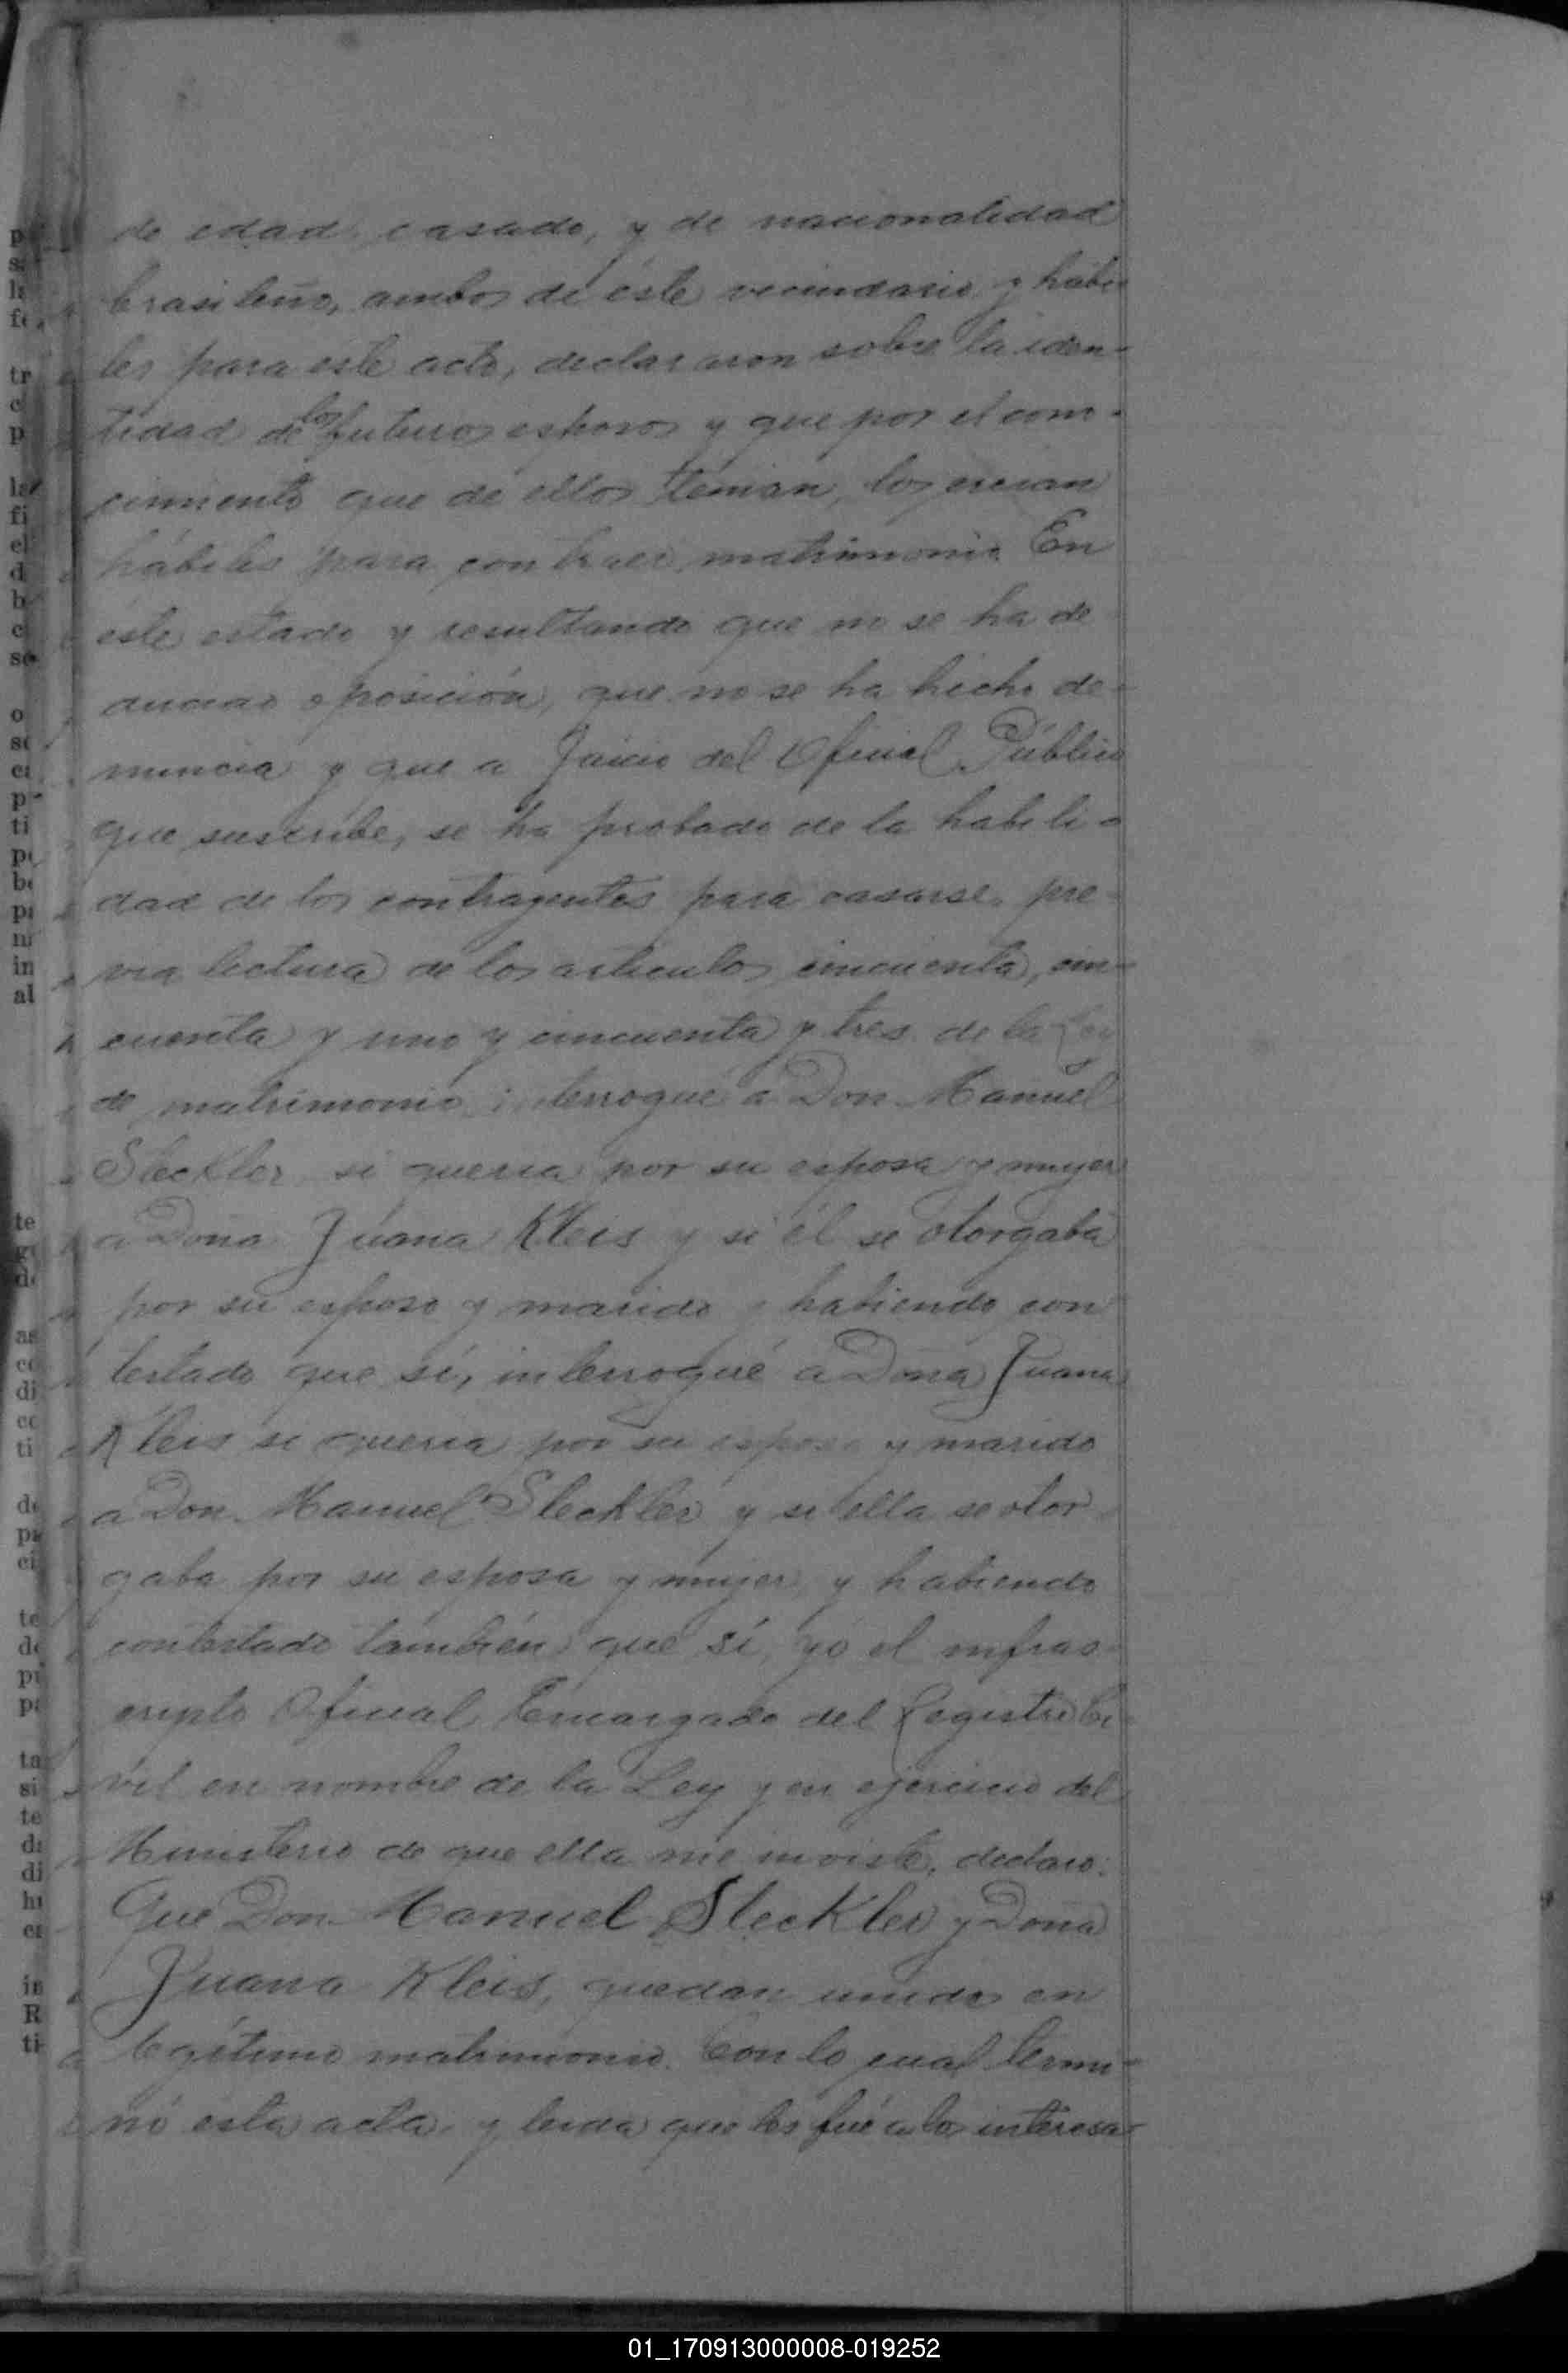 de edad, casado, y de nacionalidad
brasileño, ambos de éste vecindario y hábi
les para este acto, declararon sobre la iden-
tidad de los futuros esposos y que por el cono-
cimiento que de ellos tenían, los creían
hábiles para contraer matrimonio. En
éste estado y resultando que no se ha de
ducido oposición, que no se ha hecho de-
nuncia y que a juicio del Oficial Público
que suscribe, se ha probado de la habili-
dad de los contrayentes para casarse, pre-
via lectura de los artículos cincuenta, cin-
cuenta y uno y cincuenta y tres de la Ley
de matrimonio interrogué a Don Manuel
Steckler si quería por su esposa y mujer
a Doña Juana Kleis y si él se otorgaba
por su esposo y marido y habiendo con
testado que sí, interrogué a Doña Juana
Kleis si quería por su esposo y marido
a Don Manuel Steckler y si ella se otor
gaba por su esposa y mujer, y habiendo
contestado también que sí, yo el infras-
cripto Oficial Encargado del Registro Ci-
vil en nombre de la Ley y en ejercicio del
Ministerio de que ella me inviste, declaro:
Que Don Manuel Steckler y Doña
Juana Kleis, quedan unidos en
legítimo matrimonio. Con lo cual termi-
nó esta acta, y leida que les fué a los interesa-
01_170913000008-019252